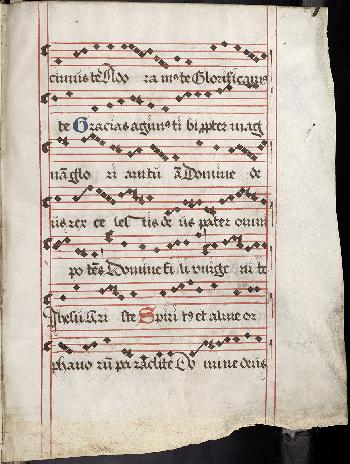 cimus te Ado ra mꝰ te Glorificamꝰ
te Gracias agimꝰ ti bi ꝓpter mag
nā glo ri am tuā Domine de
us rex ce les tis de us pater omni
po tēs Domine fi li vnige ni te
Jhesu Xri ste Spiri tꝰ et alme or
phano rū pa raclite Do mine deus